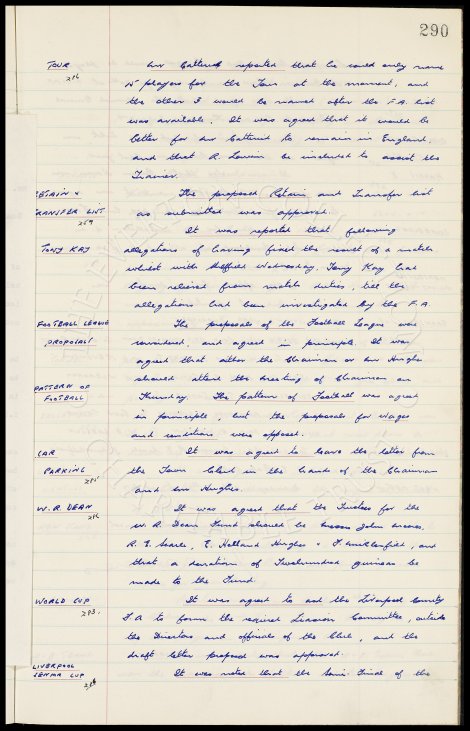 290
TOUR Mr Catterick reported that he could only name
276 15 players for the Tour at the moment, and
the other 3 would be named after the F.A. list
was available. It was agreed that it would be
better for Mr Catterick to remain in England,
and that R. Lewin be included to assist the
Trainer.
RETAIN & The proposed Retain and Transfer list
TRANSFER LIST as submitted was approved.
259 It was reported that following
TONY KAY allegations of having fixed the result of a match
whilst with Sheffield Wednesday, Tony Kay had
been relieved from match duties, till the
allegations had been investigated by the F.A.
FOOTBALL LEAGUE The proposals of the Football League was
PROPOSALS considered, and agreed in principle. It was
agreed that either the Chairman or Mr Hughes
should attend the meeting of Chairman on
PATTERN OF Thursday. The pattern of Football was agreed
FOOTBALL in principle, but the proposals for wages
and conditions were opposed.
CAR It was agreed to leave the letter from
PARKING the Town Clerk in the hands of the Chairman
285 and Mr Hughes.
W.R. DEAN It was agreed that the Trustees for the
W.R. Dean Fund should be John
R. E. Searle, E. Holland Hughes & , and
that a donation of Twohundred guineas be
made to the Fund.
WORLD CUP It was agreed to ask the Liverpool County
283. F.A to form the required Liaison Committee, outside
the Directors and officials of the Club, and the
draft letter proposed was approved.
LIVERPOOL
SENIOR CUP It was noted that the Semi-Final of the